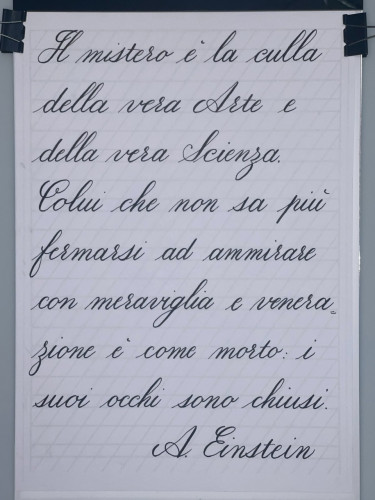 Il mistero è la culla
della vera Arte e
della vera Scienza.
Colui che non sa più
fermarsi ad ammirare
con meraviglia e venera=
zione è come morto: i
suoi occhi sono chiusi.
A. Einstein